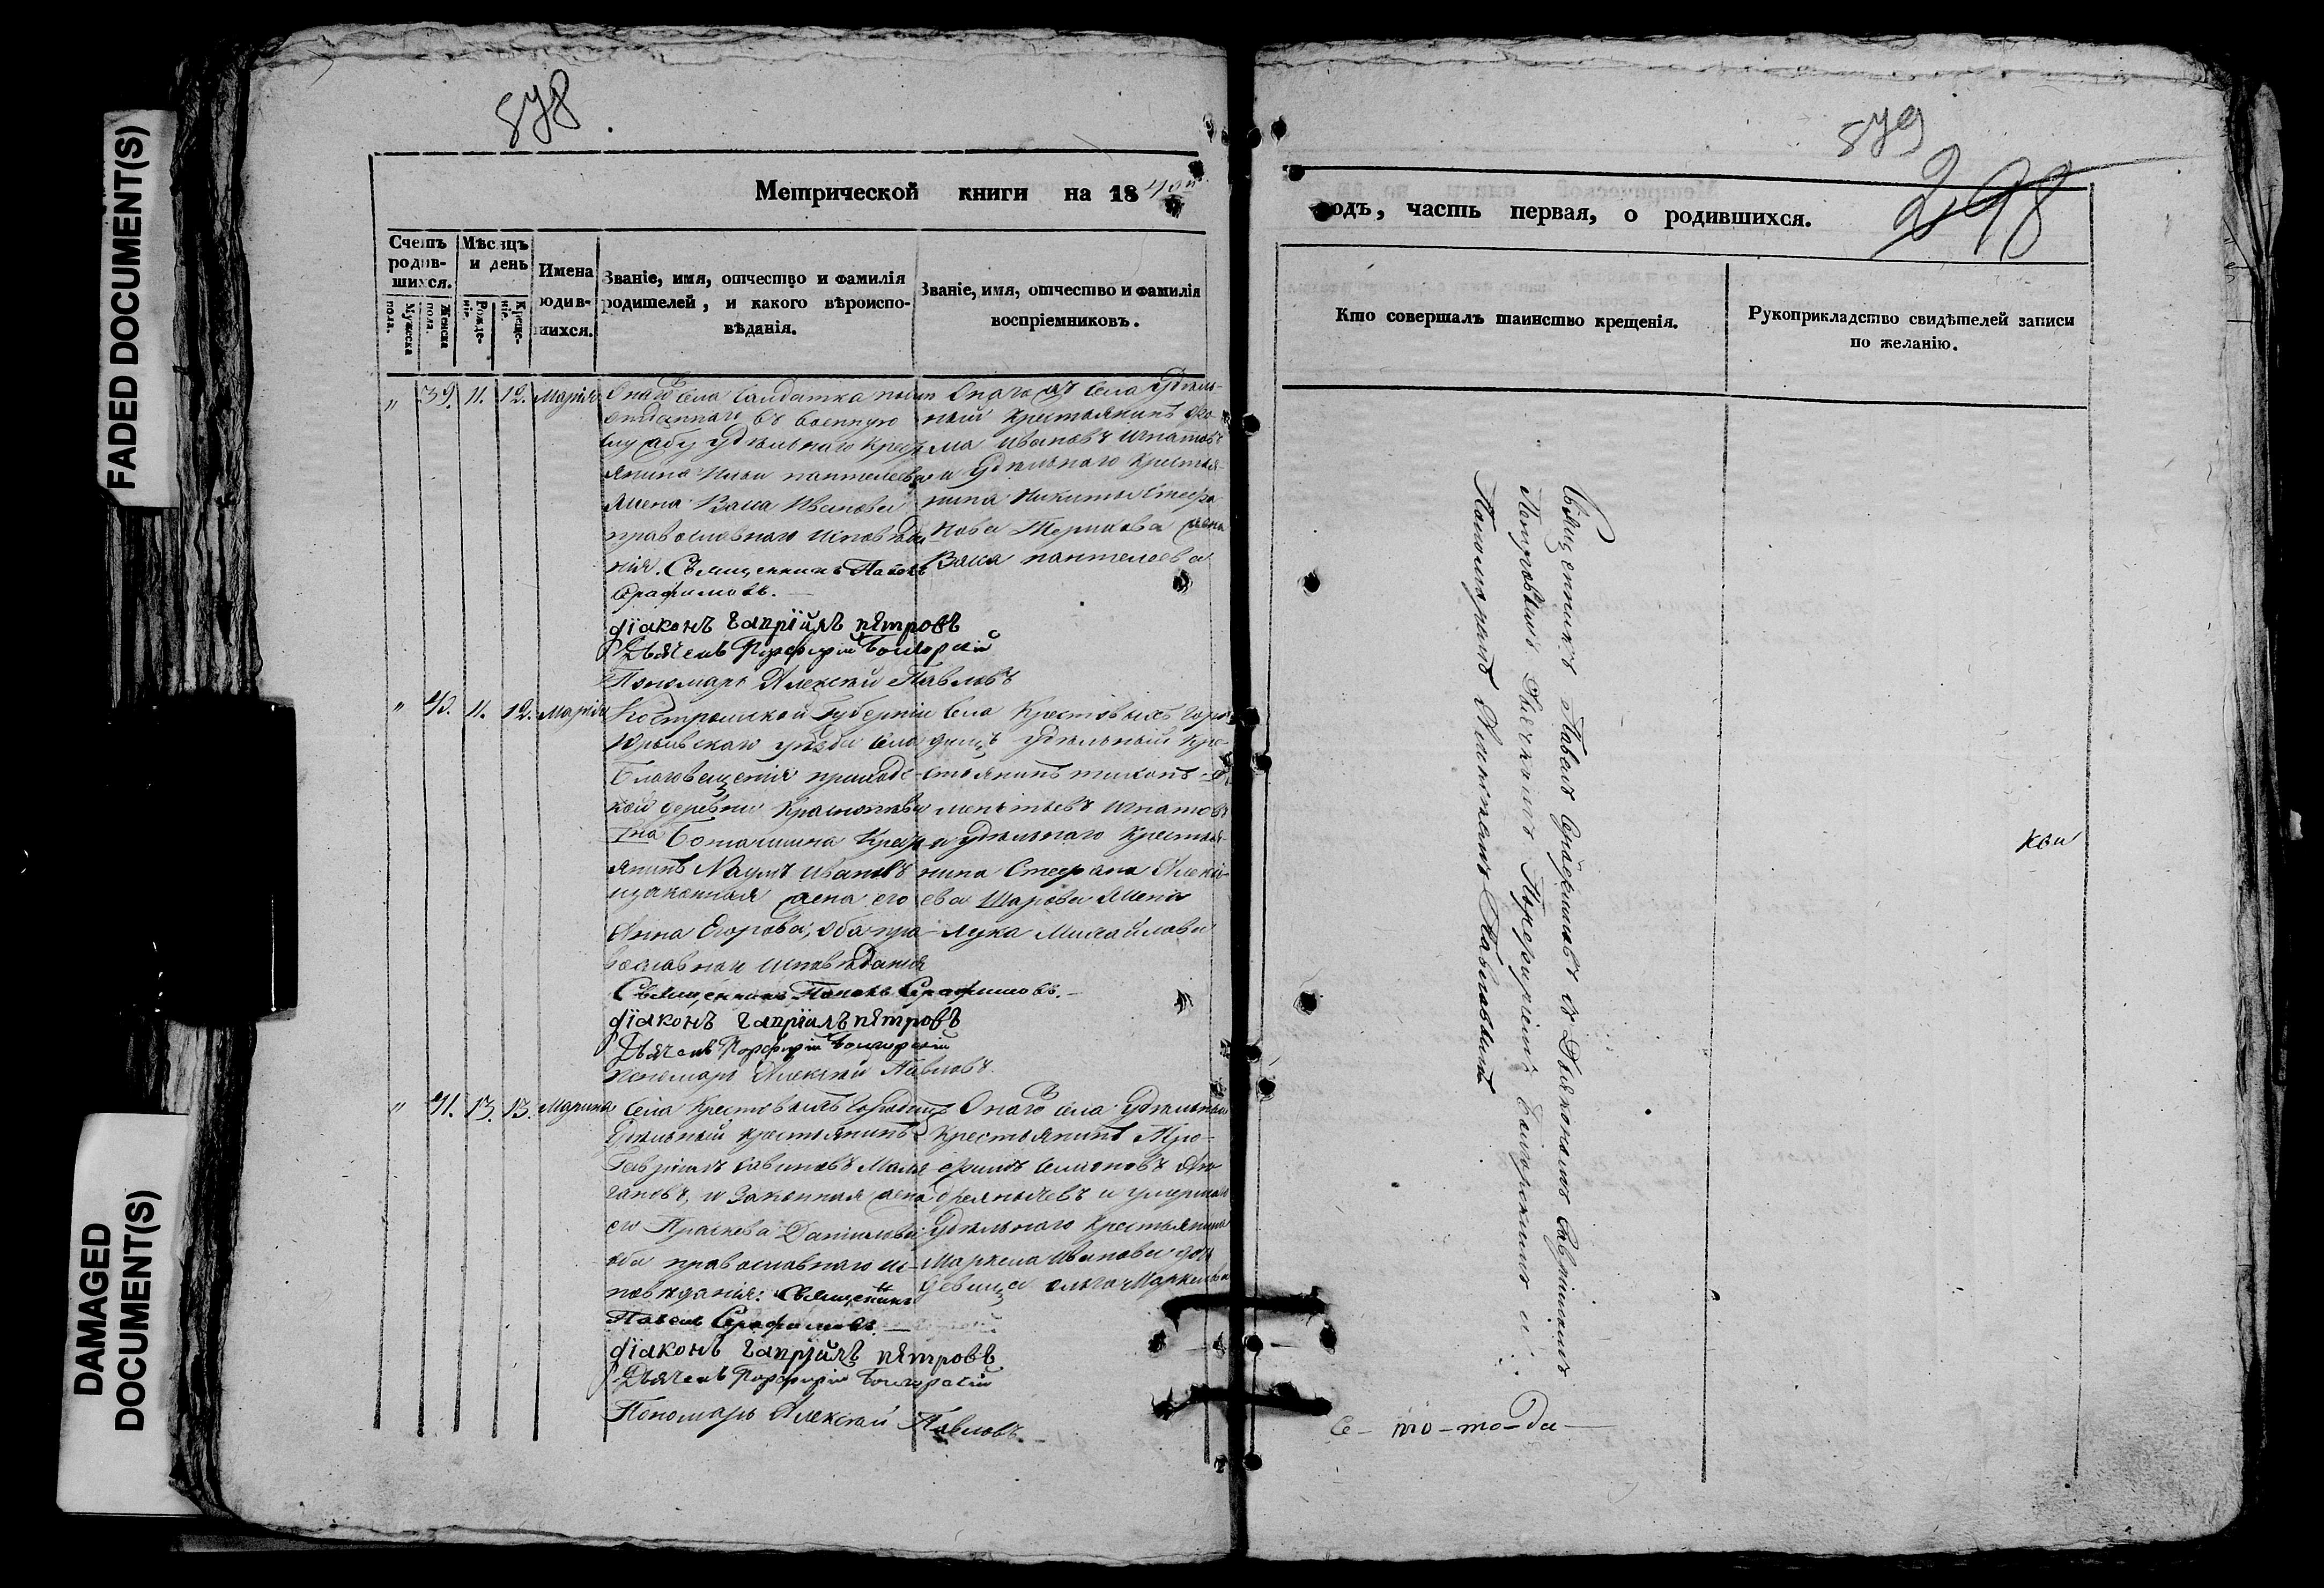 FADED DOCUMENT(S)
DAMAGED
DOCUMENT(S)
878
Метрической книги на 18
Счетъ
родив-
шихся.
Мѣсяцъ
и день
Мужеска
пола.
Женска
пола.
Рожде-
ніе.
Креще-
ніе.
Имена
родив-
шихся.
Званіе, имя, отчество и фамилія
родителей, и какого вѣроиспо-
вѣданія.
Званіе, имя, отчество и фамилія
воспріемниковъ.
" 39. 11. 12. Марія
Онаго села Салдатка
отданнаго въ военную
службу удѣльнаго крест
янина Ильи пантелеева
жена Васса Иванова
православнаго исповѣда
нія. Священникъ Павелъ
Серафимовъ.
діаконъ гапріилъ пѣтровъ
Дьячекъ Порфирій
Пономарь Алексѣй Павловъ
Онаго жъ села удѣль-
ный крестьянинъ
ма Ивановъ Игнатовъ
и удѣльнаго крестья-
нина Никиты Стефа
нова жена
Васса пантелеева
" 40. 11. 12. Марія
Костромской Губерніи
Юрьевскаго уѣзда села
Благовещенія приходс-
кой деревни
крест
янинъ Наумъ Ивановъ
изаконная жена его
Анна Егорова, оба пра-
вославнаго исповѣданія
Священникъ Павелъ Серафимовъ.
діаконъ гапріилъ пѣтровъ
Дьячекъ Порфирій
Пономарь Алексѣй Павловъ
Села Крестовыхъ Горо
дищъ удѣльный кре-
стьянинъ тихонъ
ментьевъ Игнатовъ
и удѣльнаго крестья-
нина Стефана Алексѣ-
ева Шарова жена
Лукія Михайлова
" 41. 13. 13. Марина
Села Крестовыхъ Городищъ
Удѣльный крестьянинъ
Гавріилъ Савиновъ
гановъ, и законная жена
его Праскева Даниілова
оба православнаго ис-
повѣданія: Священникъ
Павелъ Серафимовъ.
діаконъ гапріилъ пѣтровъ
Дьячекъ Порфирій
Пономарь Алексѣй Павловъ
Онаго села удѣльный
крестьянинъ Тро-
фимъ Семионовъ
и умершаго
удѣльнаго крестьянина
Маркела Иванова дочь
девица Маркелова
879
298
годъ, часть первая, о родившихся.
Кто совершалъ таинство крещенія.
Рукоприкладство свидѣтелей записи
по желанію.
Священникъ Павелъ Серафимовъ съ Діакономъ Гавріиломъ
Петровымъ Дьячкомъ Порфиріемъ и
Пономаремъ Алексѣемъ Павловымъ
кои
то-то-да